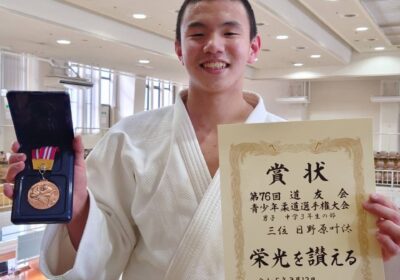 賞状
第76回 道友会
青少年柔道選手権大会
男子 中学3年生の部
三位 日野原叶汰
栄光を讃える